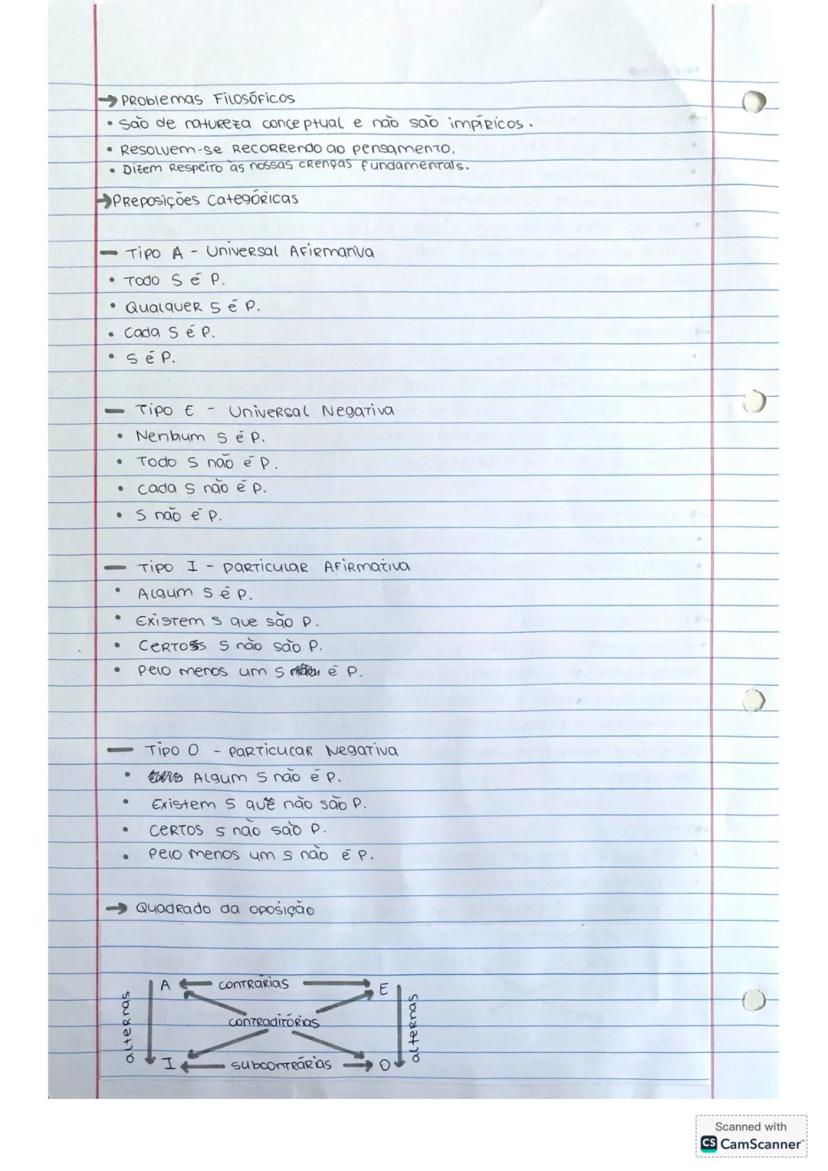 → Problemas Filosóficos
• São de natureza conceptual e não são impíricos.
• Resolvem-se recorrendo ao pensamento.
• Dizem respeito às nossas crenças fundamentais.
→ Preposições Categóricas
— Tipo A - Universal Afirmativa
• Todo S é P.
• Qualquer S é P.
• Cada S é P.
• S é P.
— Tipo E - Universal Negativa
• Nenhum S é P.
• Todo S não é P.
• Cada S não é P.
• S não é P.
— Tipo I - Particular Afirmativa
• Algum S é P.
• Existem S que são P.
• Certos S não são P.
• Pelo menos um S é P.
— Tipo O - Particular Negativa
• Algum S não é P.
• Existem S que não são P.
• Certos S não são P.
• Pelo menos um S não é P.
→ Quadrado da oposição
A ← contrárias → E
alternas
contraditórias
alternas
I ← subcontrárias → O
Scanned with
CS CamScanner